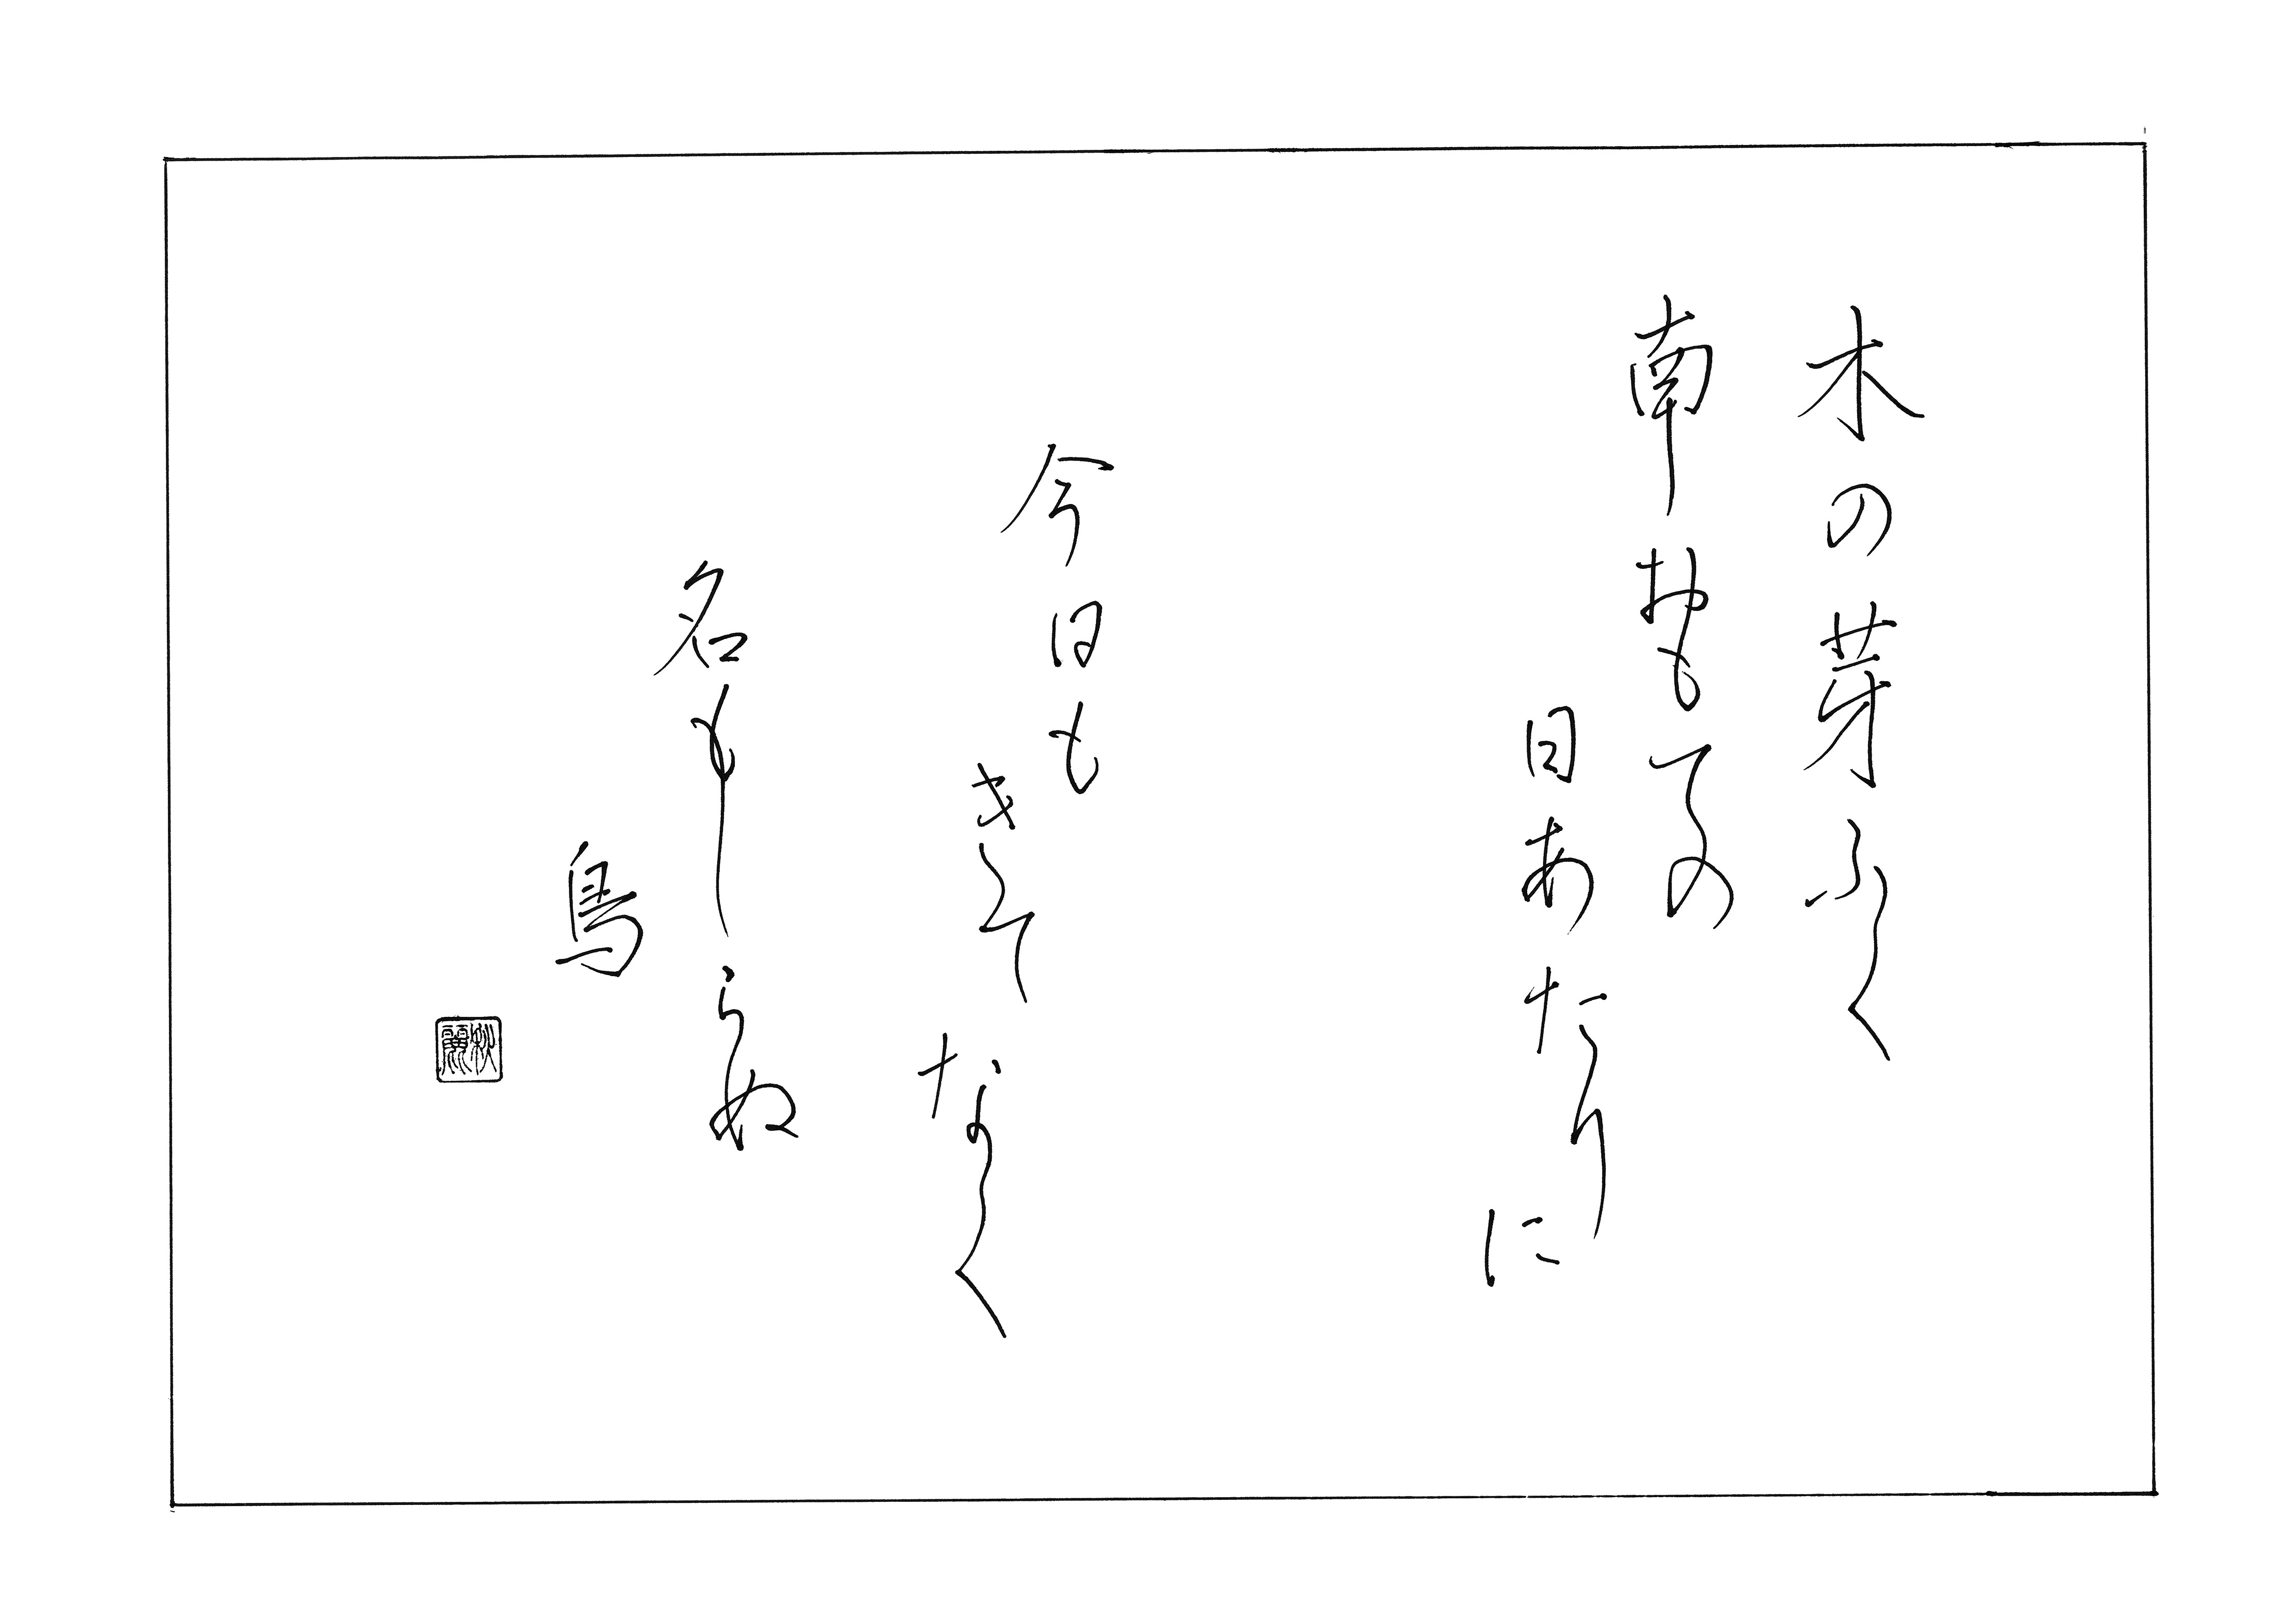 木の芽ふく
南おもての
日あたりに
今日も
きてなく
名もしらぬ
鳥